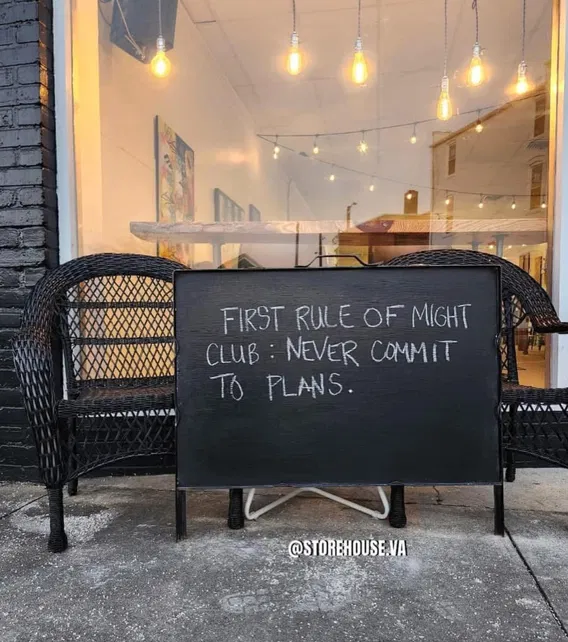 FIRST RULE OF MIGHT
CLUB: NEVER COMMIT
TO PLANS.
@STOREHOUSE.VA